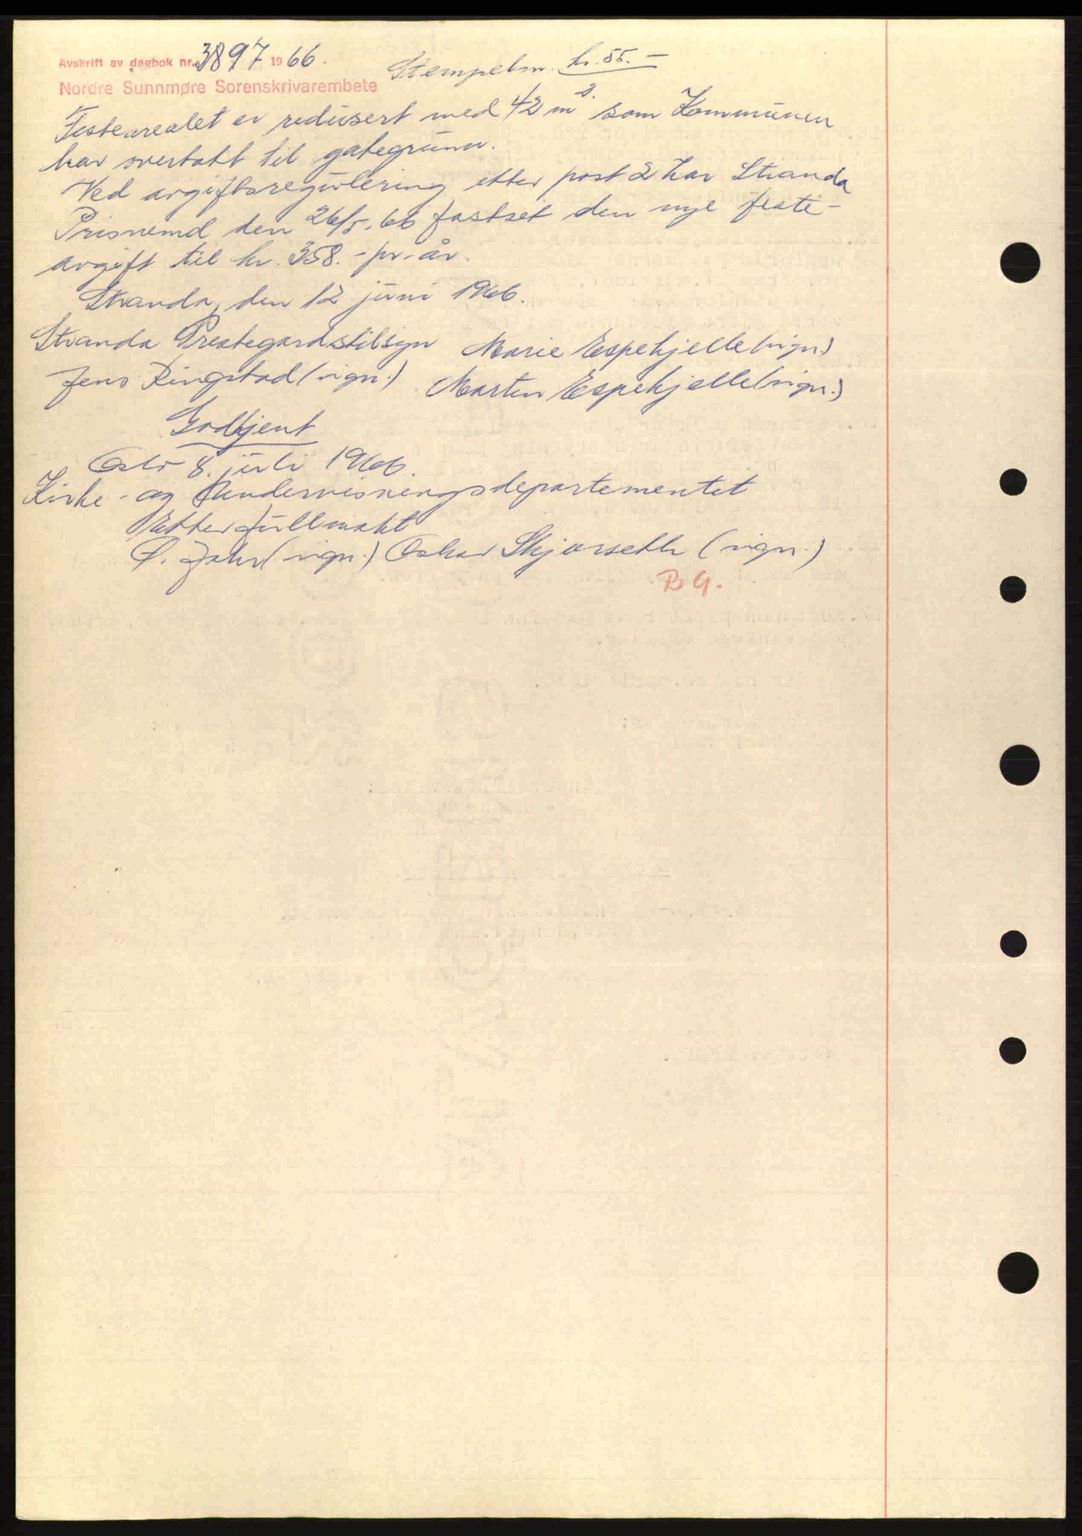 Avskrift av dagbok nr. 3897 1966.
Stempelm. kr. 55.-
Nordre Sunnmøre Sorenskrivarembete
Festearealet er redusert med 42 m². som Kommunen
har overtatt til gategrunn.
Ved avgiftsregulering etter post 2 har Stranda
Prisnemd den 26/5.66 fastset den nye feste-
avgift til kr. 358.- pr. år.
Stranda, den 12 juni 1966.
Stranda Prestegardstilsyn Marie Espehjelle (sign.)
Jens Ringstad (sign.) Marten Espehjelle (sign.)
Godkjent
Oslo 8. juli 1966.
Kirke- og Undervisningsdepartementet
Etter fullmakt
(sign.) Oskar (sign.)